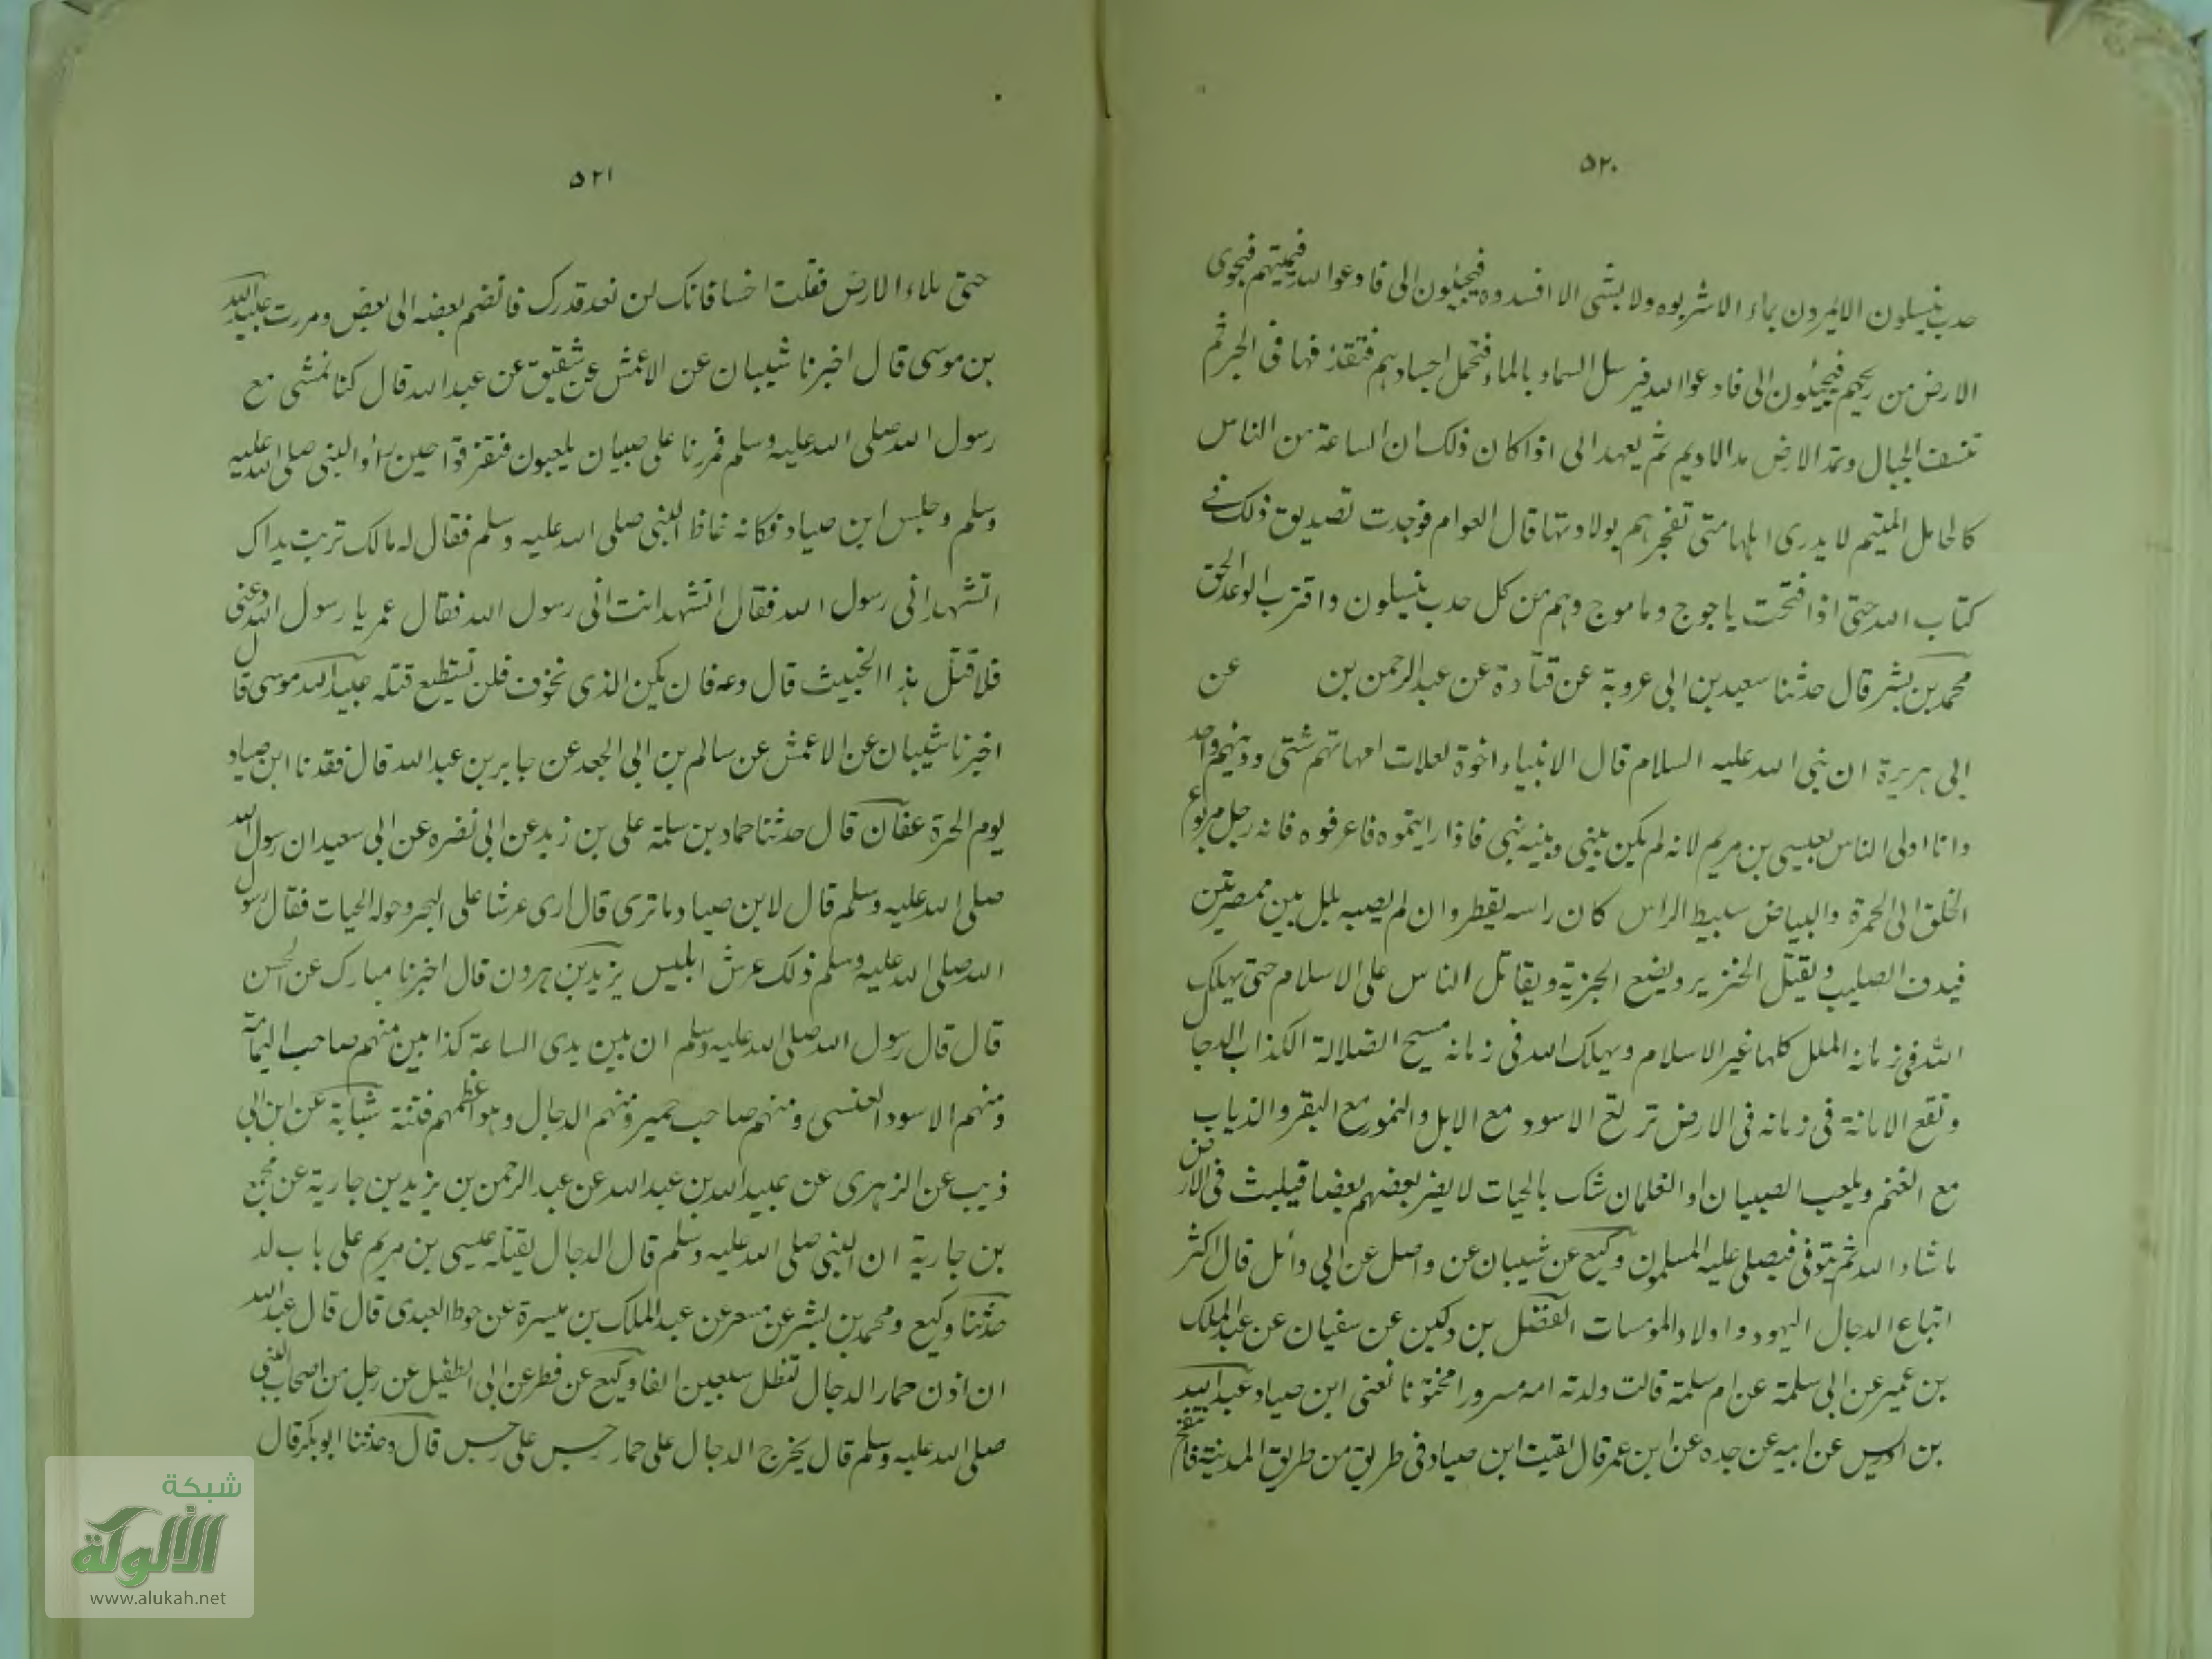 ٥٢٠
حدب ينسلون الا يمرون بماء الا شربوه ولا بشى الا افسدوه فيجيئون الى فادعوا الله فيميتهم فيجوى
الارض من ريحهم فيجيئون الى فادعوا الله فيرسل السماء بالماء فتحمل اجسادهم فتقذفها فى البحر ثم
تنسف الجبال وتمد الارض مد الاديم ثم يعهد الى اذا كان ذلك ان الساعة من الناس
كالحامل المتيم لا يدرى اهلها متى تفجرهم بولادتها قال العوام فوجدت تصديق ذلك فے
كتاب الله حتى اذا فتحت ياجوج وماجوج وهم من كل حدب ينسلون واقترب الوعد الحق
محمد بن بشر قال حدثنا سعيد بن ابى عروبة عن قتادة عن عبد الرحمن بن عن
ابى هريرة ان نبى الله عليه السلام قال الانبياء اخوة لعلات امهاتهم شتى ودينهم واحد
وانا اولى الناس بعيسى بن مريم لانه لم يكن بينى وبينه نبى فاذا رايتموه فاعرفوه فانه رجل مربوع
الخلق الى الحمرة والبياض سبيط الراس كان راسه يقطر وان لم يصبه بلل بين ممصرتين
فيدق الصليب ويقتل الخنزير ويضع الجزية ويقاتل الناس على الاسلام حتى يهلك
الله فى زمانه الملل كلها غير الاسلام ويهلك الله فى زمانه مسيح الضلالة الكذاب الدجال
وتقع الامانة فى زمانه فى الارض ترتع الاسود مع الابل والنمور مع البقر والذياب
مع الغنم ويلعب الصبيان او الغلمان شك بالحيات لا يضر بعضهم بعضا فيلبث فى الارض
ما شاء الله ثم يتوفى فيصلى عليه المسلمون وكيع عن شيبان عن واصل عن ابى وائل قال اكثر
اتباع الدجال اليهود واولاد المومسات الفضل بن دكين عن سفيان عن عبد الملك
بن عمير عن ابى سلمة عن ام سلمة قالت ولدته امه مسرورا مختونا تعنى ابن صياد عبد الله
بن ادريس عن ابيه عن جده عن ابن عمر قال لقيت ابن صياد فى طريق من طريق المدينة فانتفخ
٥٢١
حتى ملاء الارض فقلت اخسا فانك لن تعد قدرك فانضم بعضه الى بعض ومررت عبيد الله
بن موسى قال اخبرنا شيبان عن الاعمش عن شقيق عن عبد الله قال كنا نمشى مع
رسول الله صلى الله عليه وسلم فمررنا على صبيان يلعبون فتفرقوا حين رأوا النبى صلى الله عليه
وسلم وجلس ابن صياد فكانه غاظ النبى صلى الله عليه وسلم فقال له مالك تربت يداك
اتشهد انى رسول الله فقال اتشهد انت انى رسول الله فقال عمر يا رسول الله دعنى
فلاقتل هذا الخبيث قال دعه فان يكن الذى تخوف فلن تستطيع قتله عبيد الله موسى قال
اخبرنا شيبان عن الاعمش عن سالم بن ابى الجعد عن جابر بن عبد الله قال فقدنا ابن صياد
يوم الحرة عفان قال حدثنا حماد بن سلمة على بن زيد عن ابى نضره عن ابى سعيد ان رسول الله
صلى الله عليه وسلم قال لابن صياد ما ترى قال ارى عرشا على البحر وحوله الحيات فقال رسول
الله صلى الله عليه وسلم ذلك عرش ابليس يزيد بن هرون قال اخبرنا مبارك عن الحسن
قال قال رسول الله صلى الله عليه وسلم ان بين يدى الساعة كذابين منهم صاحب اليمامة
ومنهم الاسود العنسى ومنهم صاحب حمير ومنهم الدجال وهو اعظمهم فتنة شبابة عن ابن ابى
ذيب عن الزهرى عن عبيد الله بن عبد الله عن عبد الرحمن بن يزيد بن جارية عن مجمع
بن جارية ان النبى صلى الله عليه وسلم قال الدجال يقتله عيسى بن مريم على باب لد
حدثنا وكيع ومحمد بن بشر عن مسعر عن عبد الملك بن ميسرة عن حوط العبدى قال قال عبد الله
ان اذن حمار الدجال تظل سبعين الفا وكيع عن فطر عن ابى الطفيل عن رجل من اصحاب النبى
صلى الله عليه وسلم قال يخرج الدجال على حمار رجس على رجس قال وحدثنا ابو بكر قال
شبكة
الألوكة
www.alukah.net